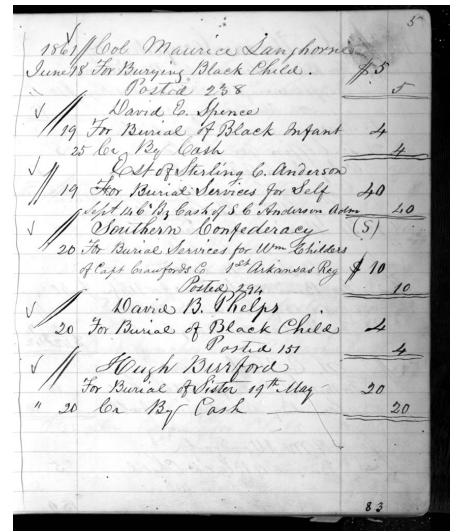 5
1861 Col Maurice Langhorne
June 18 For Burying Black Child. $5
Posted 238 5
David E. Spence
19 For Burial of Black Infant 4
25 Cr By Cash 4
Est of Sterling C. Anderson
19 For Burial Services for Self 40
Sept 14 Cr By Cash of S C Anderson Adm 40
Southern Confederacy (S)
20 For Burial Services for Wm Childers
of Capt Crawfords Co 1st Arkansas Reg $10
Posted 294 10
David B. Phelps
20 For Burial of Black Child 4
Posted 151 4
Hugh Burford
For Burial of Sister 19th May 20
" 20 Cr By Cash 20
83